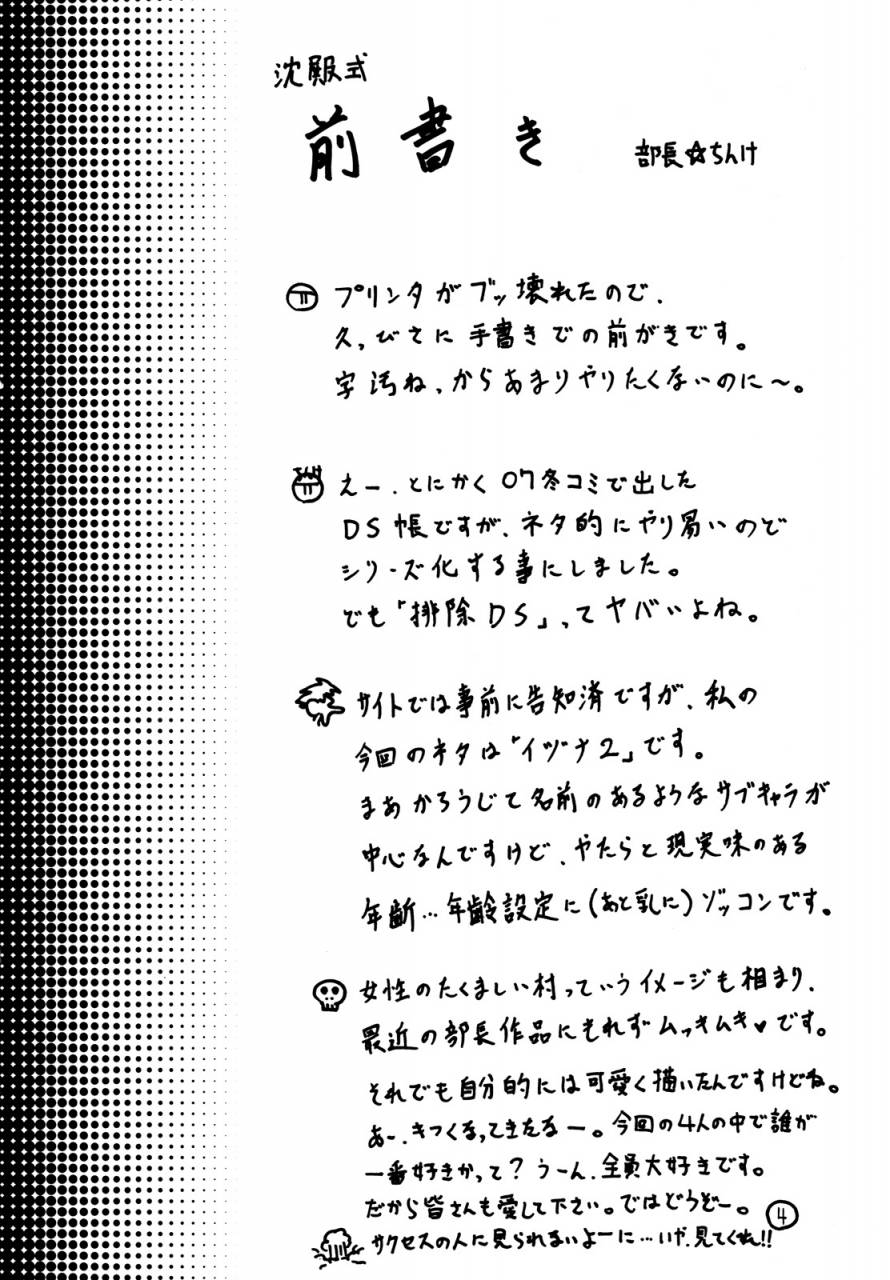 沈殿式
前書き
部長☆ちんけ
プリンタがブッ壊れたので、
久っびさに手書きでの前がきです。
字汚ねっからあまりやりたくないのに〜。
えー、とにかく07冬コミで出した
DS帳ですが、ネタ的にやり易いので
シリーズ化する事にしました。
でも「排除DS」ってヤバいよね。
サイトでは事前に告知済ですが、私の
今回のネタは「イヅナ2」です。
まあかろうじて名前のあるようなサブキャラが
中心なんですけど、やたらと現実味のある
年齢…年齢設定に(あと乳に)ゾッコンです。
女性のたくましい村っていうイメージも相まり、
最近の部長作品にもれずムっキムキ♥です。
それでも自分的には可愛く描いたんですけどね。
あー、きつくなってきたなー。今回の4人の中で誰が
一番好きかって？うーん、全員大好きです。
だから皆さんも愛して下さい。ではどうぞー。
4
サクセスの人に見られないよーに…いや、見てくれ!!